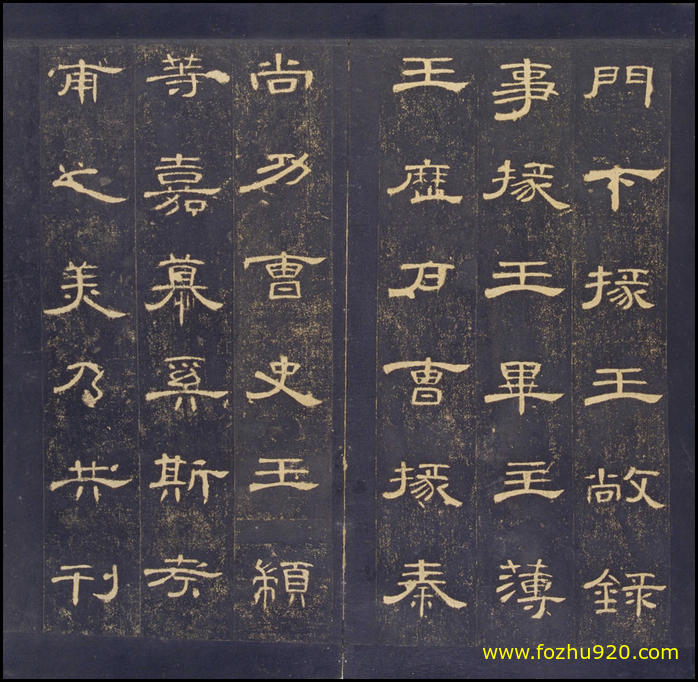 門下掾王敞録
事掾王畢主薄
王歷户曹掾秦
尚功曹史王顓
等嘉慕奚斯考
甫之美乃共刊
www.fozhu920.com